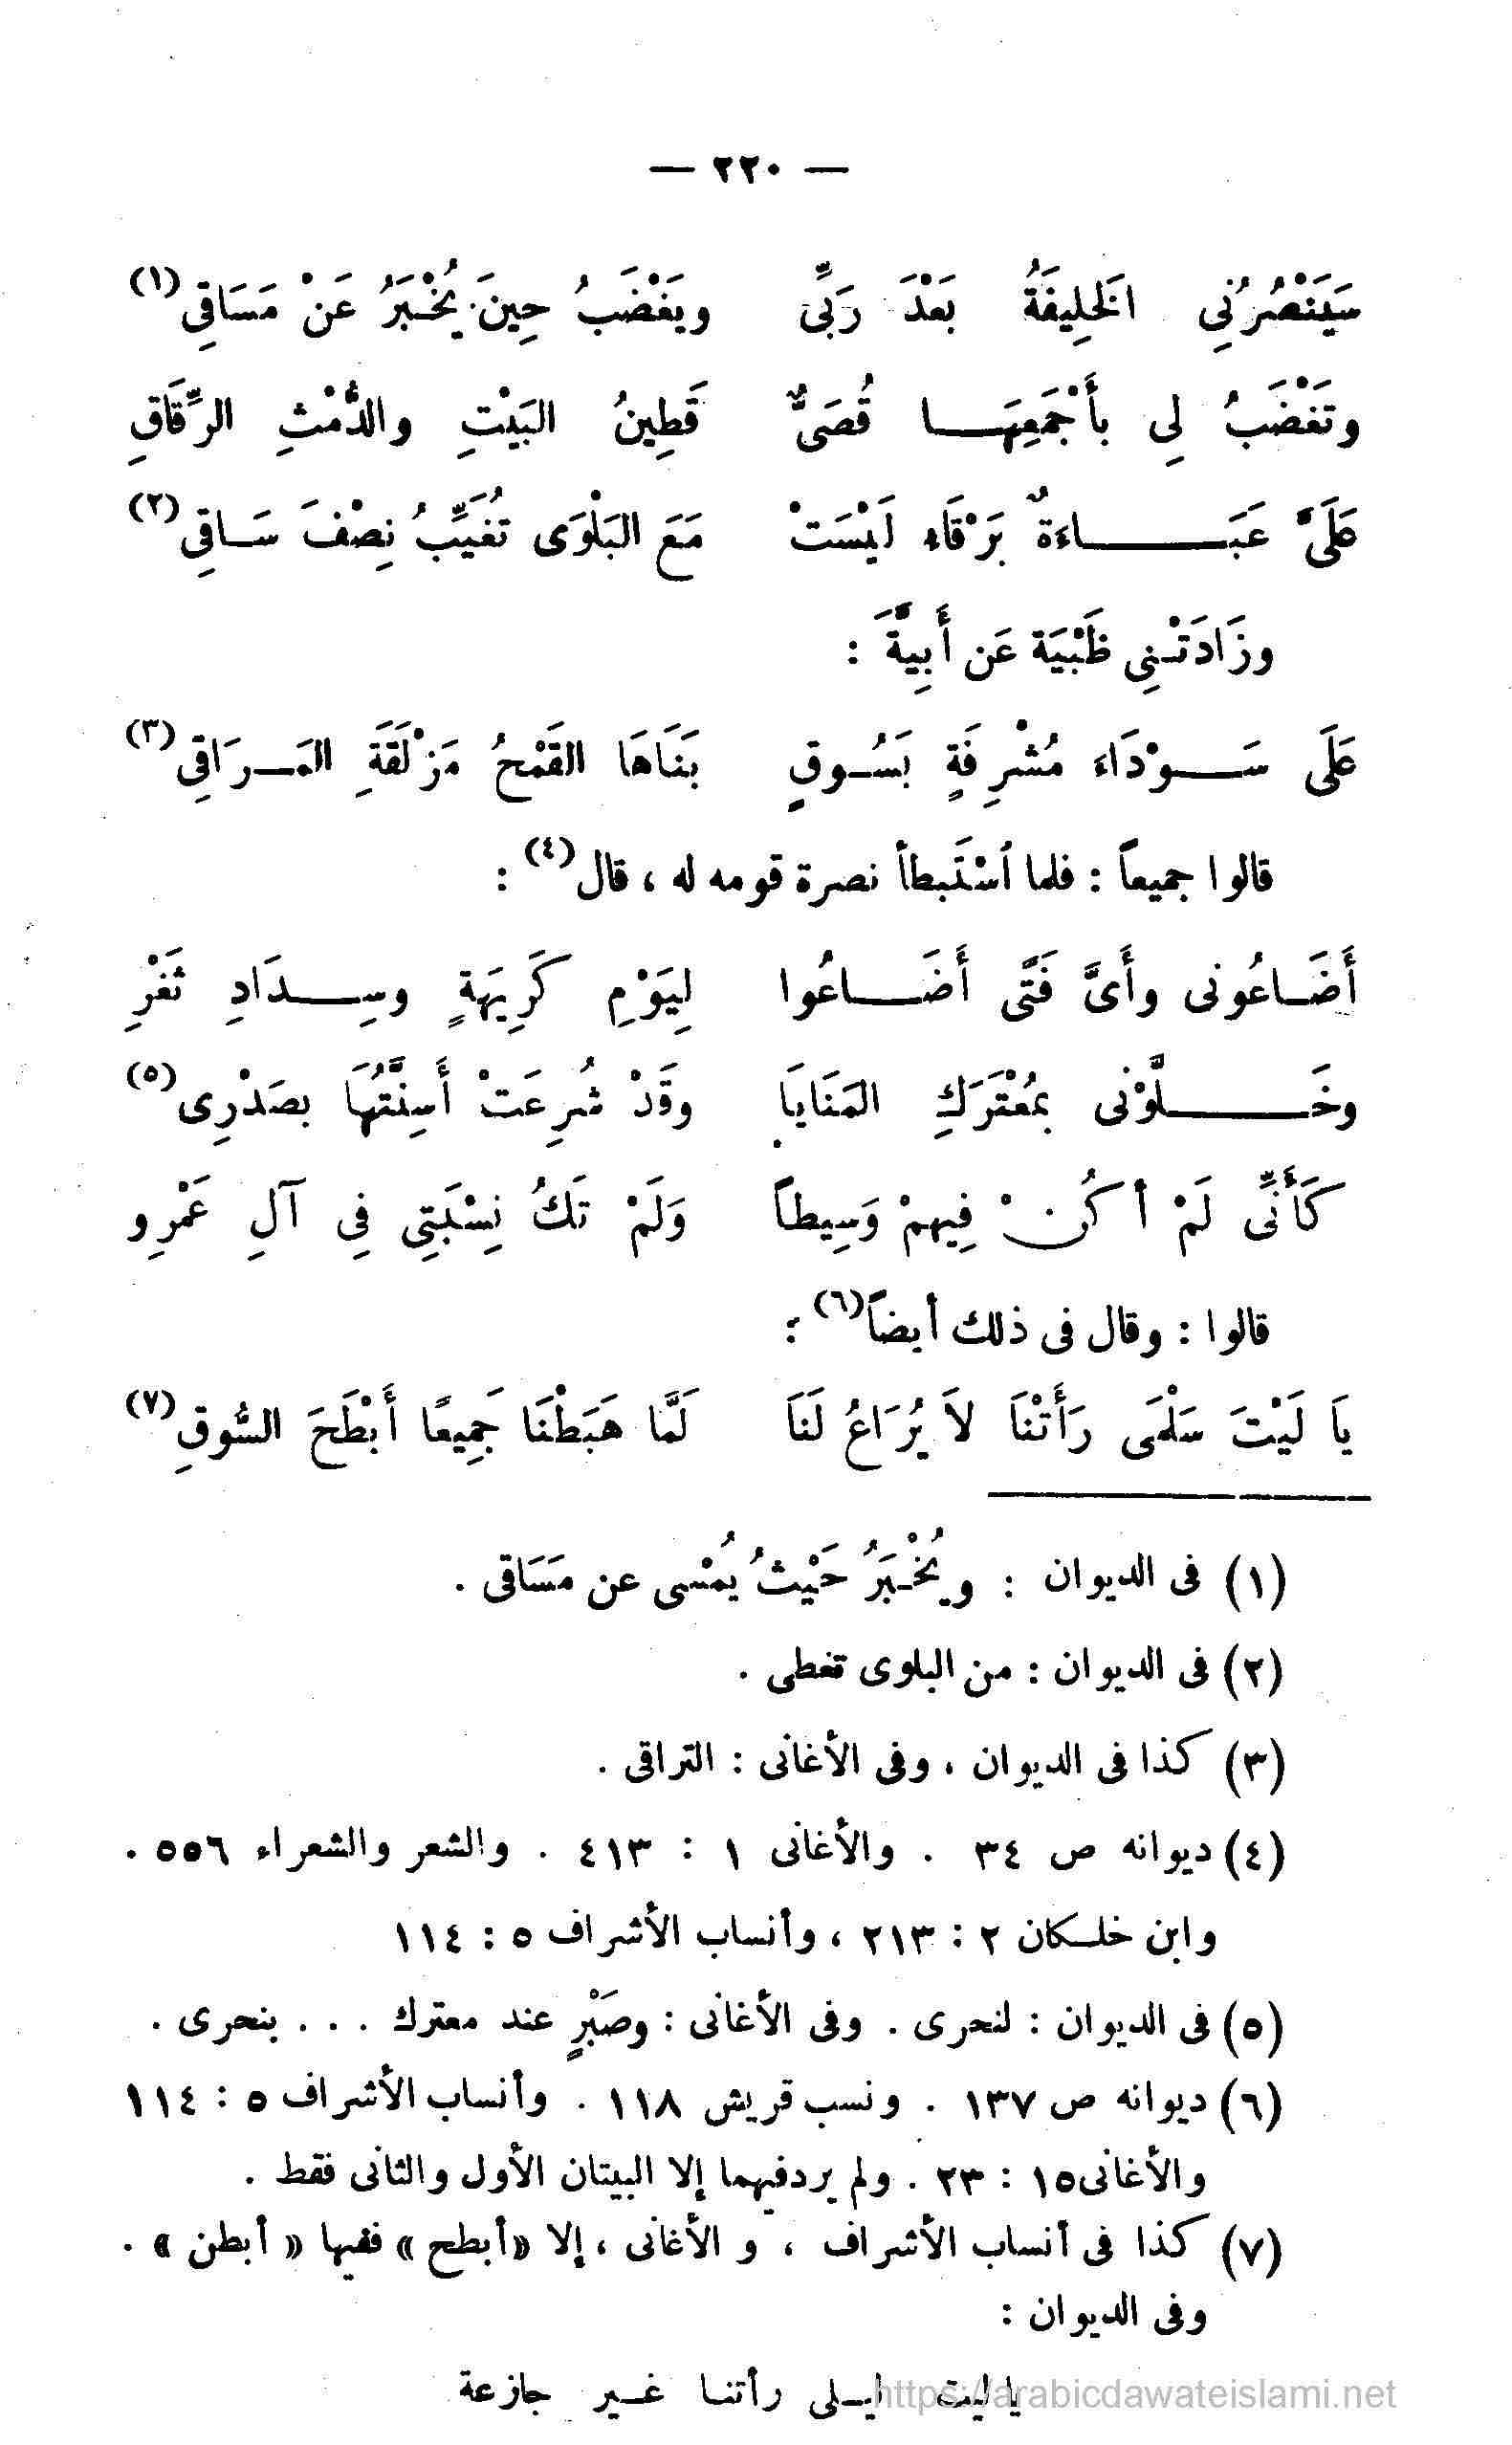 — ٢٢٠ —
سَيَنْصُرُنِي الْخَلِيفَةُ بَعْدَ رَبِّى ويَغْضَبُ حِينَ يُخْبَرُ عَنْ مَسَاقِي (١)
وتَغْضَبُ لِي بأَجْمَعِهَا قُصَىٌّ قَطِينُ البَيْتِ والدُّمْثِ الرِّقَاقِ
عَلَىَّ عَبَاءَةٌ بَرْقَاء لَيْسَتْ مَعَ البَلْوَى تُغَيِّبُ نِصْفَ سَاقِي (٢)
وزَادَتْنِى ظَبْيَة عَن أَبِيَّةَ :
عَلَى سَوْدَاء مُشْرِفَةٍ بَسُوقٍ بَنَاهَا القَمْحُ مَزْلَقَةَ المَرَاقِي (٣)
قالوا جميعاً : فلما اسْتَبطأ نصرة قومه له ، قال (٤) :
أَضَاعُونى وأَىَّ فَتًى أَضَاعُوا لِيَوْمِ كَرِيهَةٍ وسِدَادِ ثَغْرِ
وخَلَّوْنى بمُعْتَرَكِ المَنَايَا وقَدْ شُرِعَتْ أَسِنَّتُهَا بصَدْرِى (٥)
كَأَنِّى لَمْ أكُنْ فِيهمْ وَسِيطاً وَلَمْ تَكُ نِسْبَتِي فِي آلِ عَمْرِو
قالوا : وقال فى ذلك أيضاً (٦) :
يَا لَيْتَ سَلْمَى رَأَتْنَا لاَ يُرَاعُ لَنَا لَمَّا هَبَطْنَا جَمِيعًا أَبْطَحَ السُّوقِ (٧)
(١) فى الديوان : ويُخْبَرُ حَيْثُ يُمْسى عن مَسَاقى .
(٢) فى الديوان : من البلوى تغطى .
(٣) كذا فى الديوان ، وفى الأغانى : التراقى .
(٤) ديوانه ص ٣٤ . والأغانى ١ : ٤١٣ . والشعر والشعراء ٥٥٦ .
وابن خلكان ٢ : ٢١٣ ، وأنساب الأشراف ٥ : ١١٤
(٥) فى الديوان : لنحرى . وفى الأغانى : وصَبْرٍ عند معترك . . . بنحرى .
(٦) ديوانه ص ١٣٧ . ونسب قريش ١١٨ . وأنساب الأشراف ٥ : ١١٤
والأغانى ١٥ : ٢٣ . ولم يرد فيهما إلا البيتان الأول والثانى فقط .
(٧) كذا فى أنساب الأشراف ، و الأغانى ، إلا «أبطح» ففيها « أبطن » .
وفى الديوان :
يا ليت ليلى رأتنا غير جازعة
https://arabicdawateislami.net